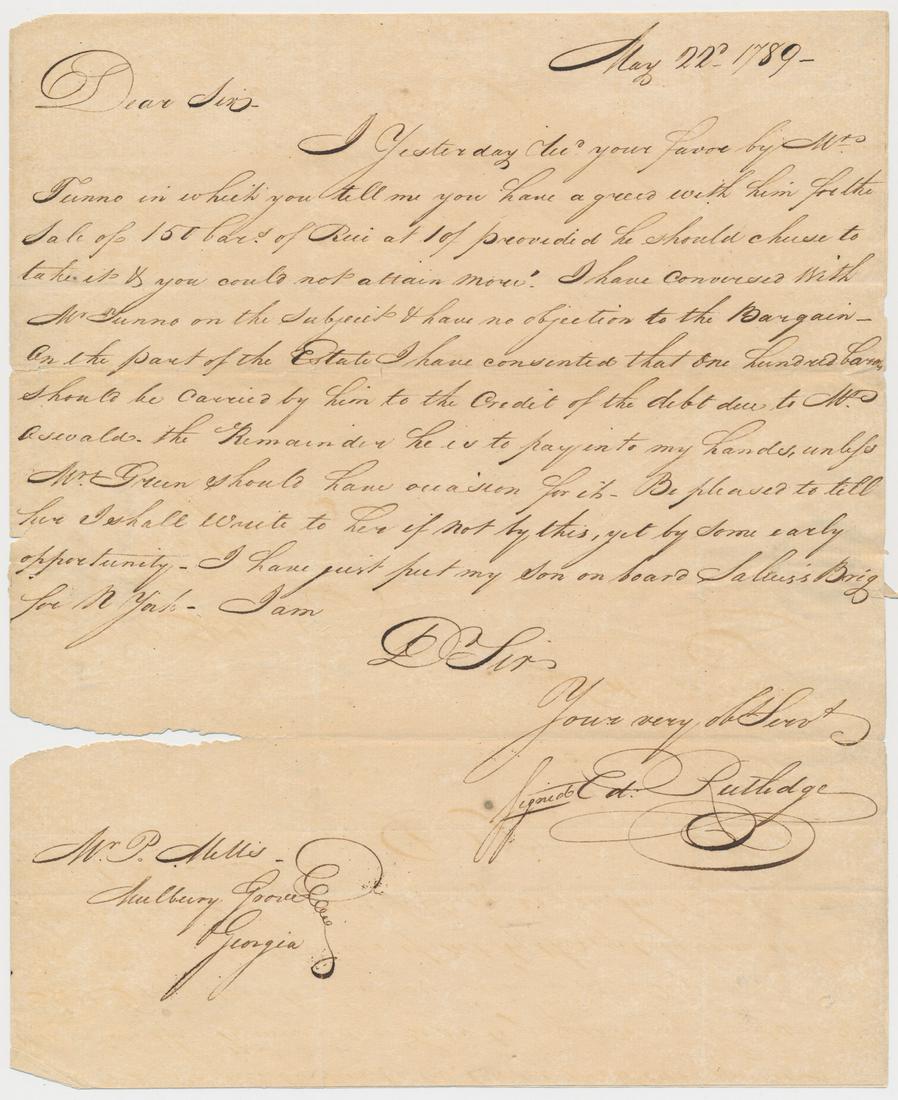 May 22d 1789-
Dear Sir-
I Yesterday Rec'd your favor by Mr.
Tunno in which you tell me you have agreed with him for the
Sale of 150 bars. of Rice at 10/ provided he should chuse to
take it & you could not attain more. I have conversed With
Mr Tunno on the Subject & have no objection to the Bargain-
On the part of the Estate I have consented that One hundred barrs
should be carried by him to the Credit of the debt due to Mr.
Oswald. the Remainder he is to pay into my hands, unless
Mrs Green should have occasion for it- Be pleased to tell
her I shall Write to her if not by this, yet by some early
opportunity- I have just put my son on board Brig
for N York- I am
Dr Sir
Your very obt Servt
signed Ed: Rutledge
Mr P. Miller -
Mulbury Grove
Georgia